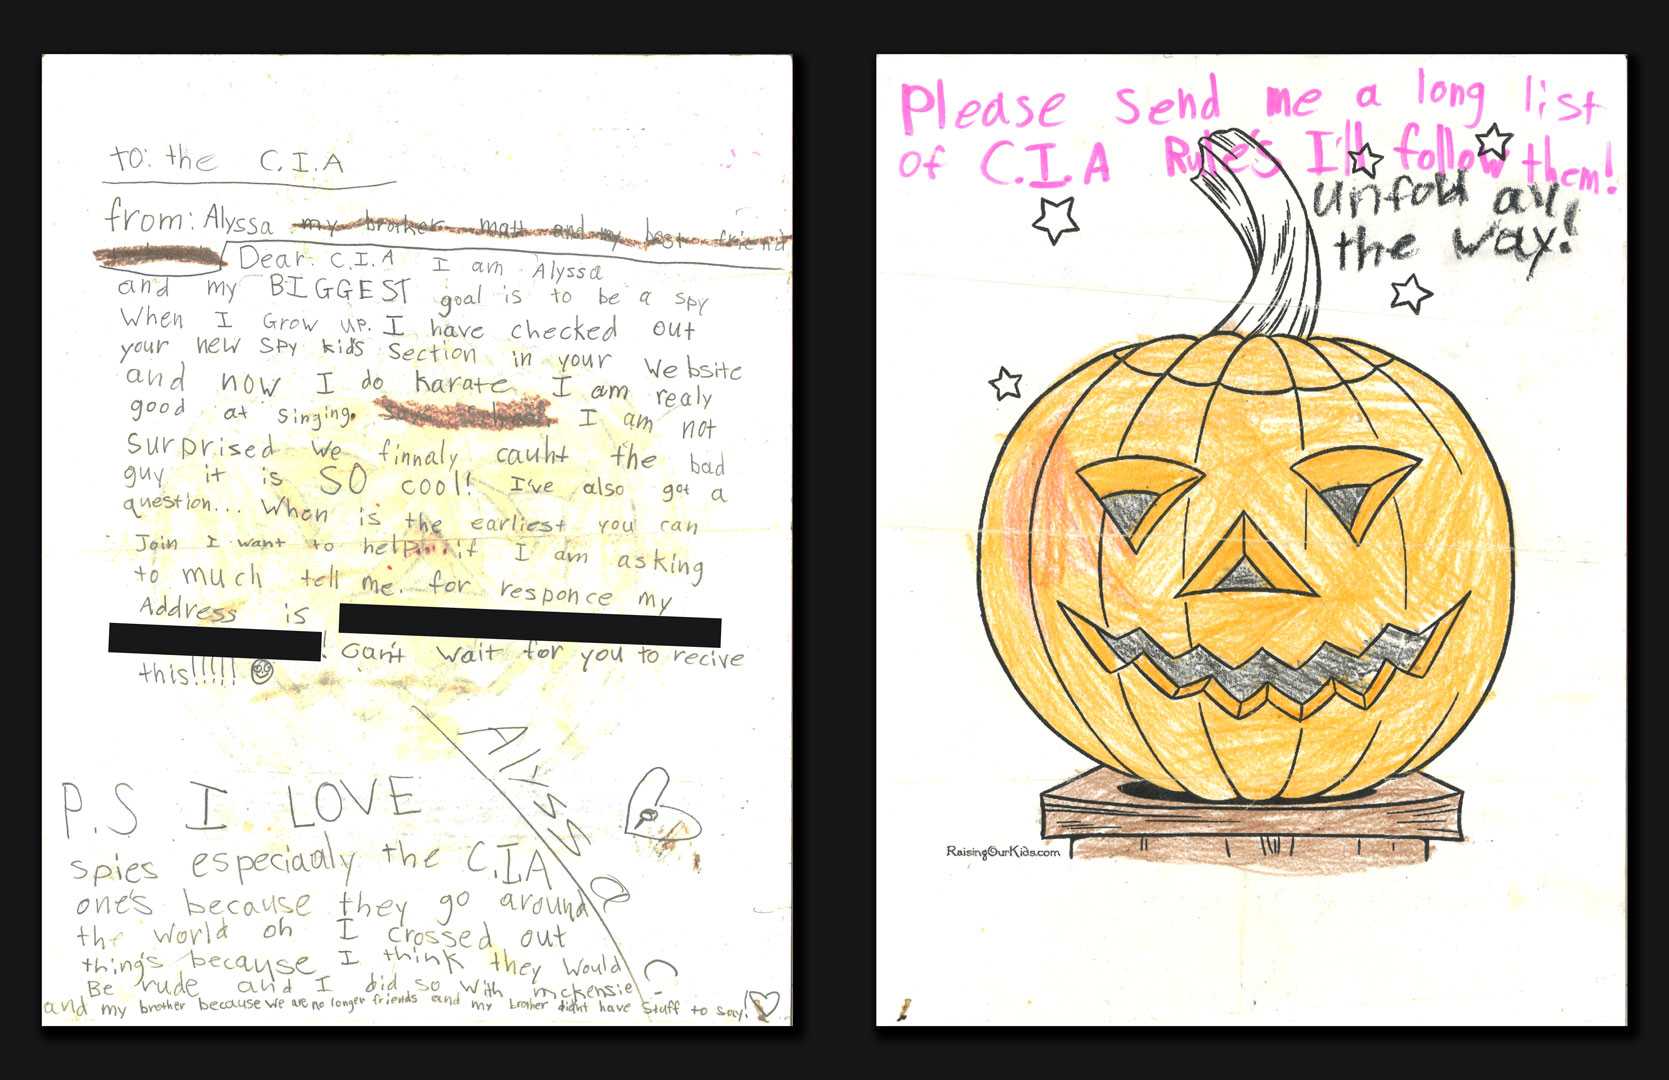 to: the C.I.A
from: Alyssa my brother matt and my best friend
Dear. C.I.A I am Alyssa
and my BIGGEST goal is to be a spy
When I Grow up. I have checked out
your new SPY kids Section in your Website
and now I do karate I am realy
good at singing. I am not
Surprised we finnaly cauht the bad
guy it is SO cool! I've also got a
question... When is the earliest you can
Join I want to help if I am asking
to much tell me. for responce my
Address is
! Can't wait for you to recive
this!!!!!
Alyssa
P.S I LOVE
spies especiaaly the C.I.A
one's because they go around
the world oh I crossed out
thing's because I think they would
Be rude and I did so with mckensie
and my brother because we are no longer friends and my brother didn't have stuff to say!
Please send me a long list
of C.I.A Rule's I'll follow them!
unfold all
the way!
RaisingOurKids.com